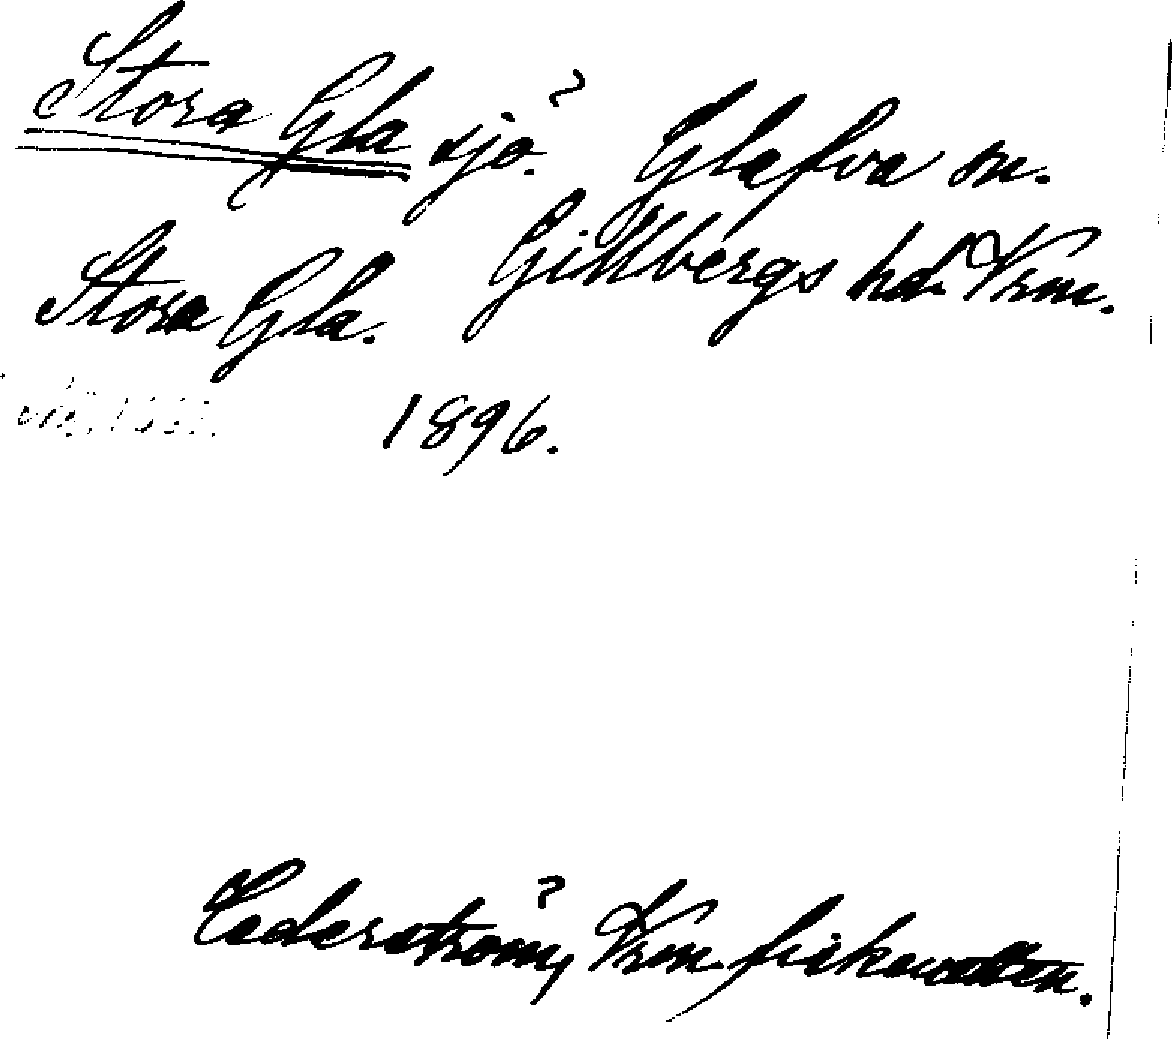 Stora Gla sjö. Glafva sn.
Stora Gla. Gillbergs hd. Vrm.
1896.
Cederström, Vrm. fiskevatten.